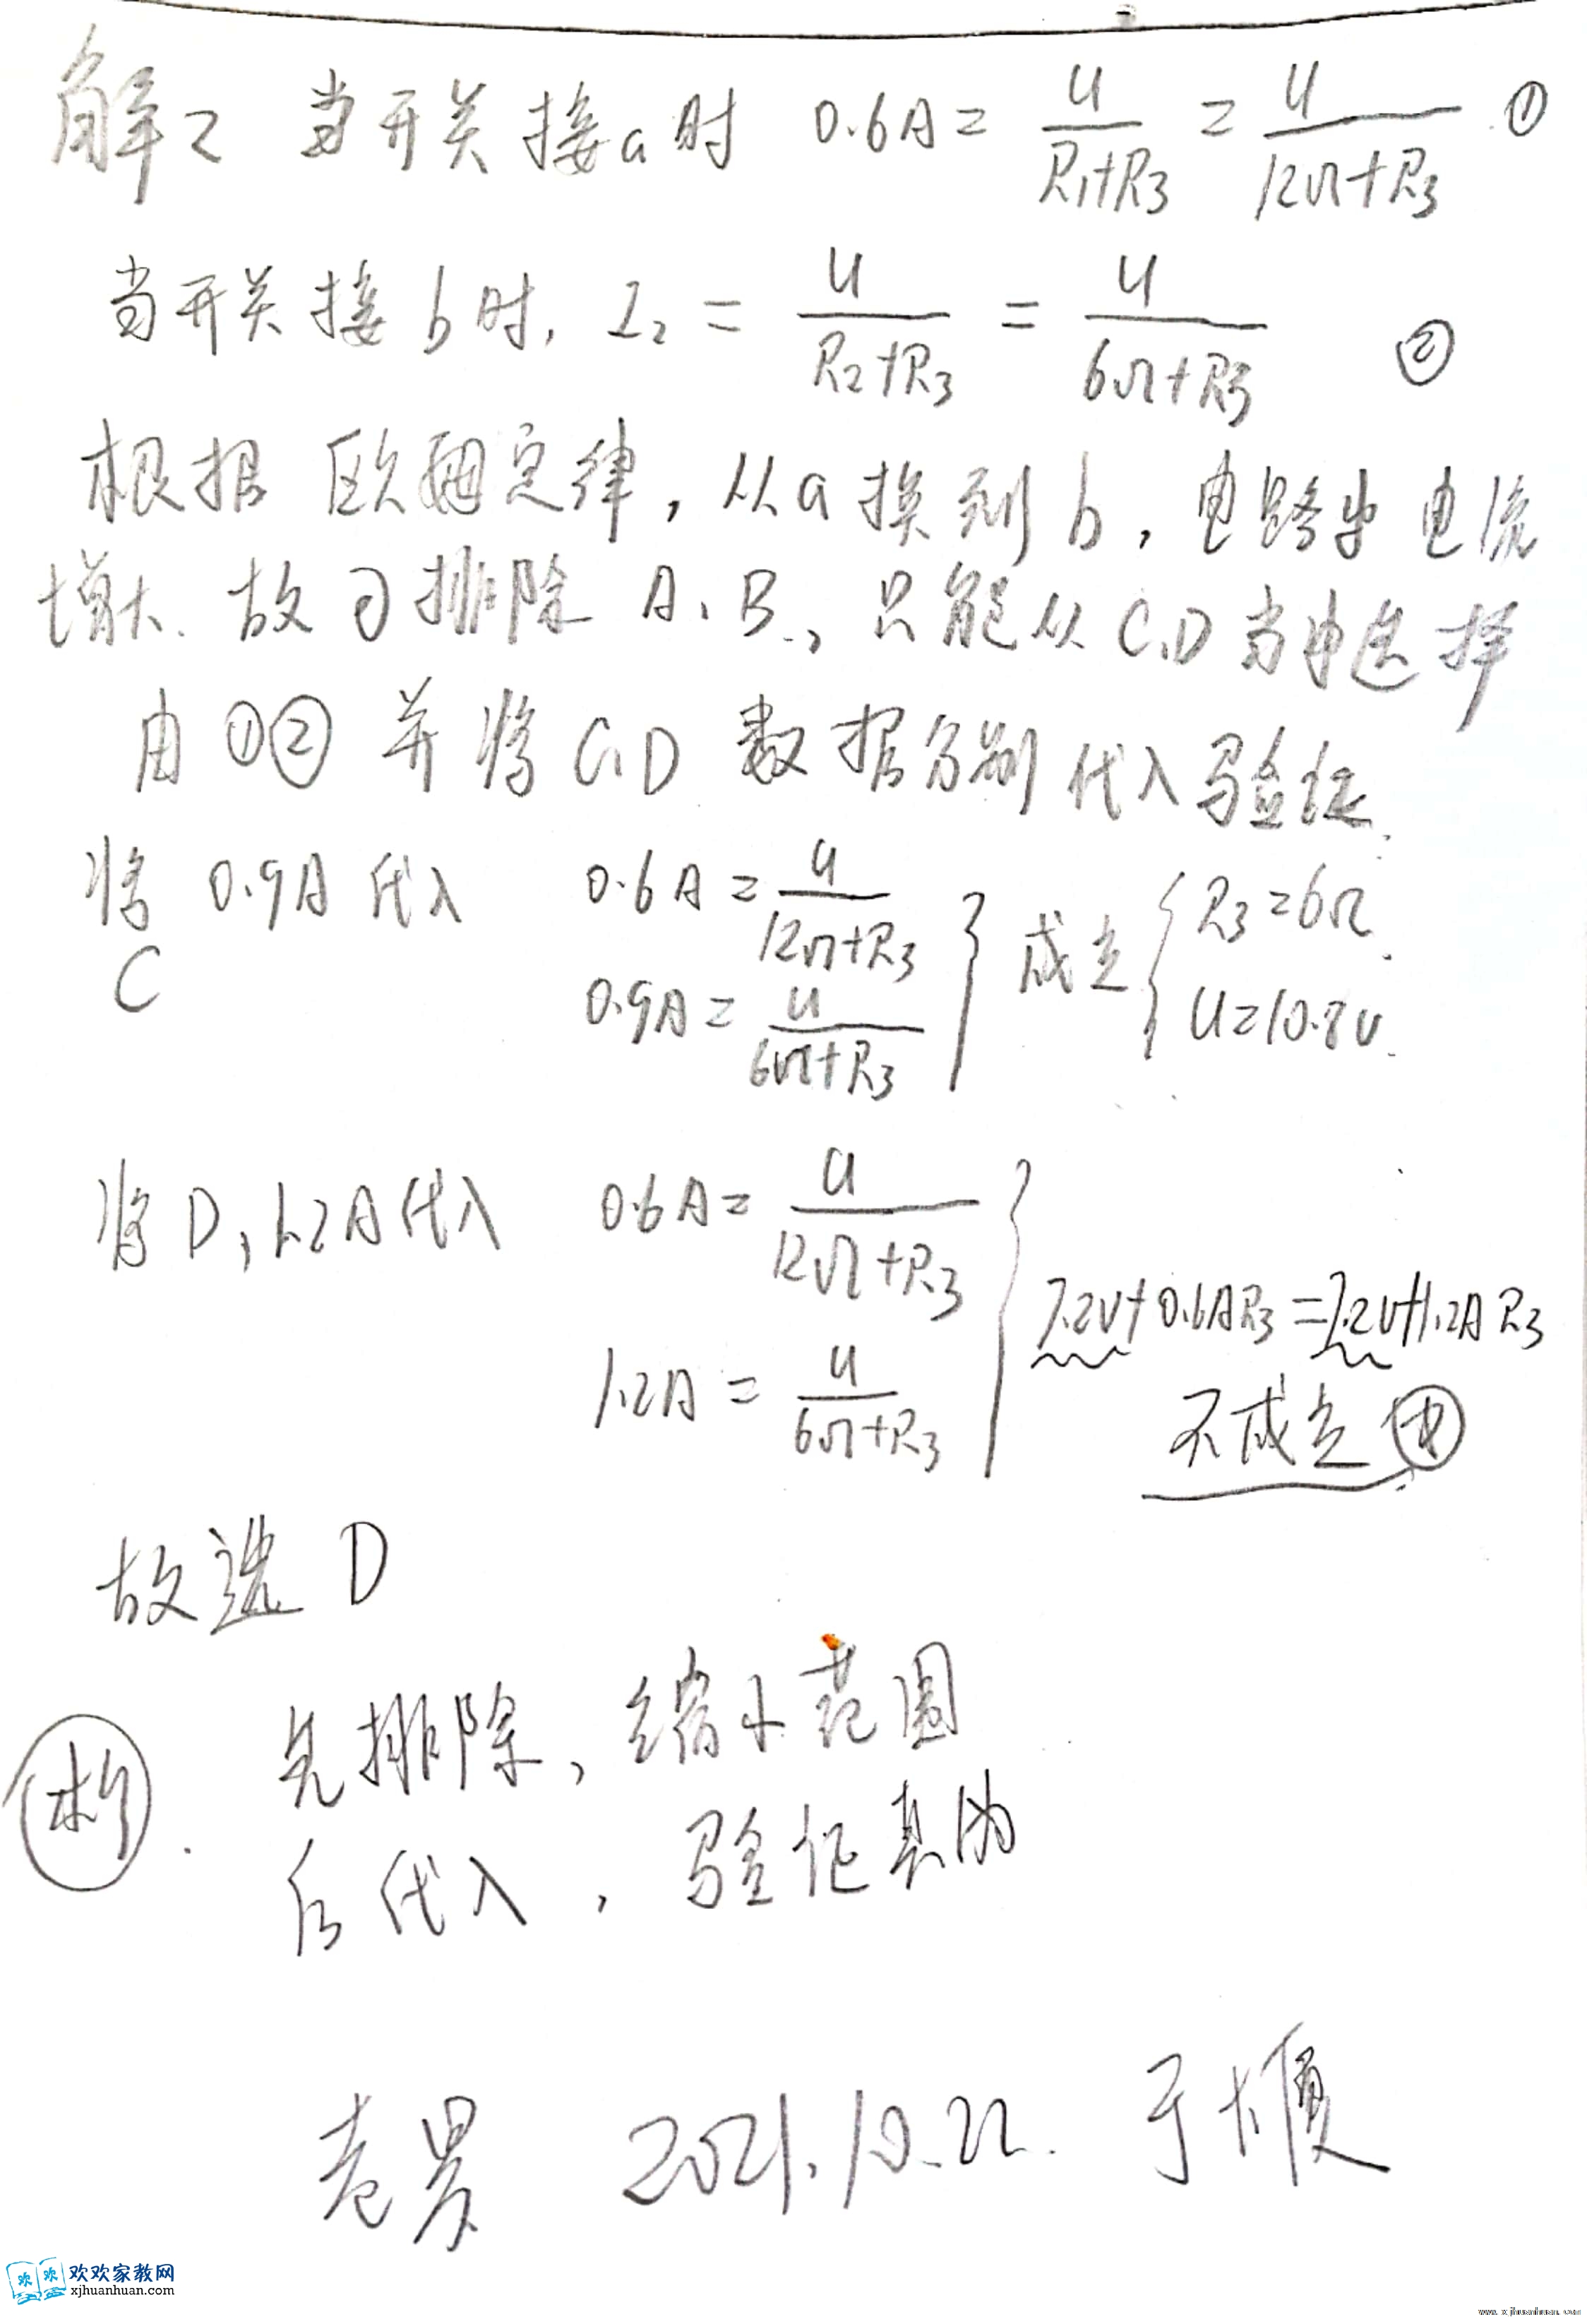 解: 当开关接a时 0.6A = U/(R1+R3) = U/(12Ω+R3) ①
当开关接b时, I2 = U/(R2+R3) = U/(6Ω+R3) ②
根据欧姆定律, 从a换到b, 电路中电流
增大. 故可排除 A、B., 只能从C,D当中选择
由①② 并将C,D 数据分别代入验证.
将 0.9A 代入 0.6A = U/(12Ω+R3)
C 0.9A = U/(6Ω+R3) } 成立 { R3=6Ω. U=10.8V.
将D, 1.2A代入 0.6A = U/(12Ω+R3)
1.2A = U/(6Ω+R3) } 7.2V+0.6AR3=7.2V+1.2AR3
不成立
故选 D
析. 先排除, 缩小范围
后代入, 验证真伪
2021.10.22. 于大顺
欢欢家教网
xjhuanhuan.com
www.xjhuanhuan.com